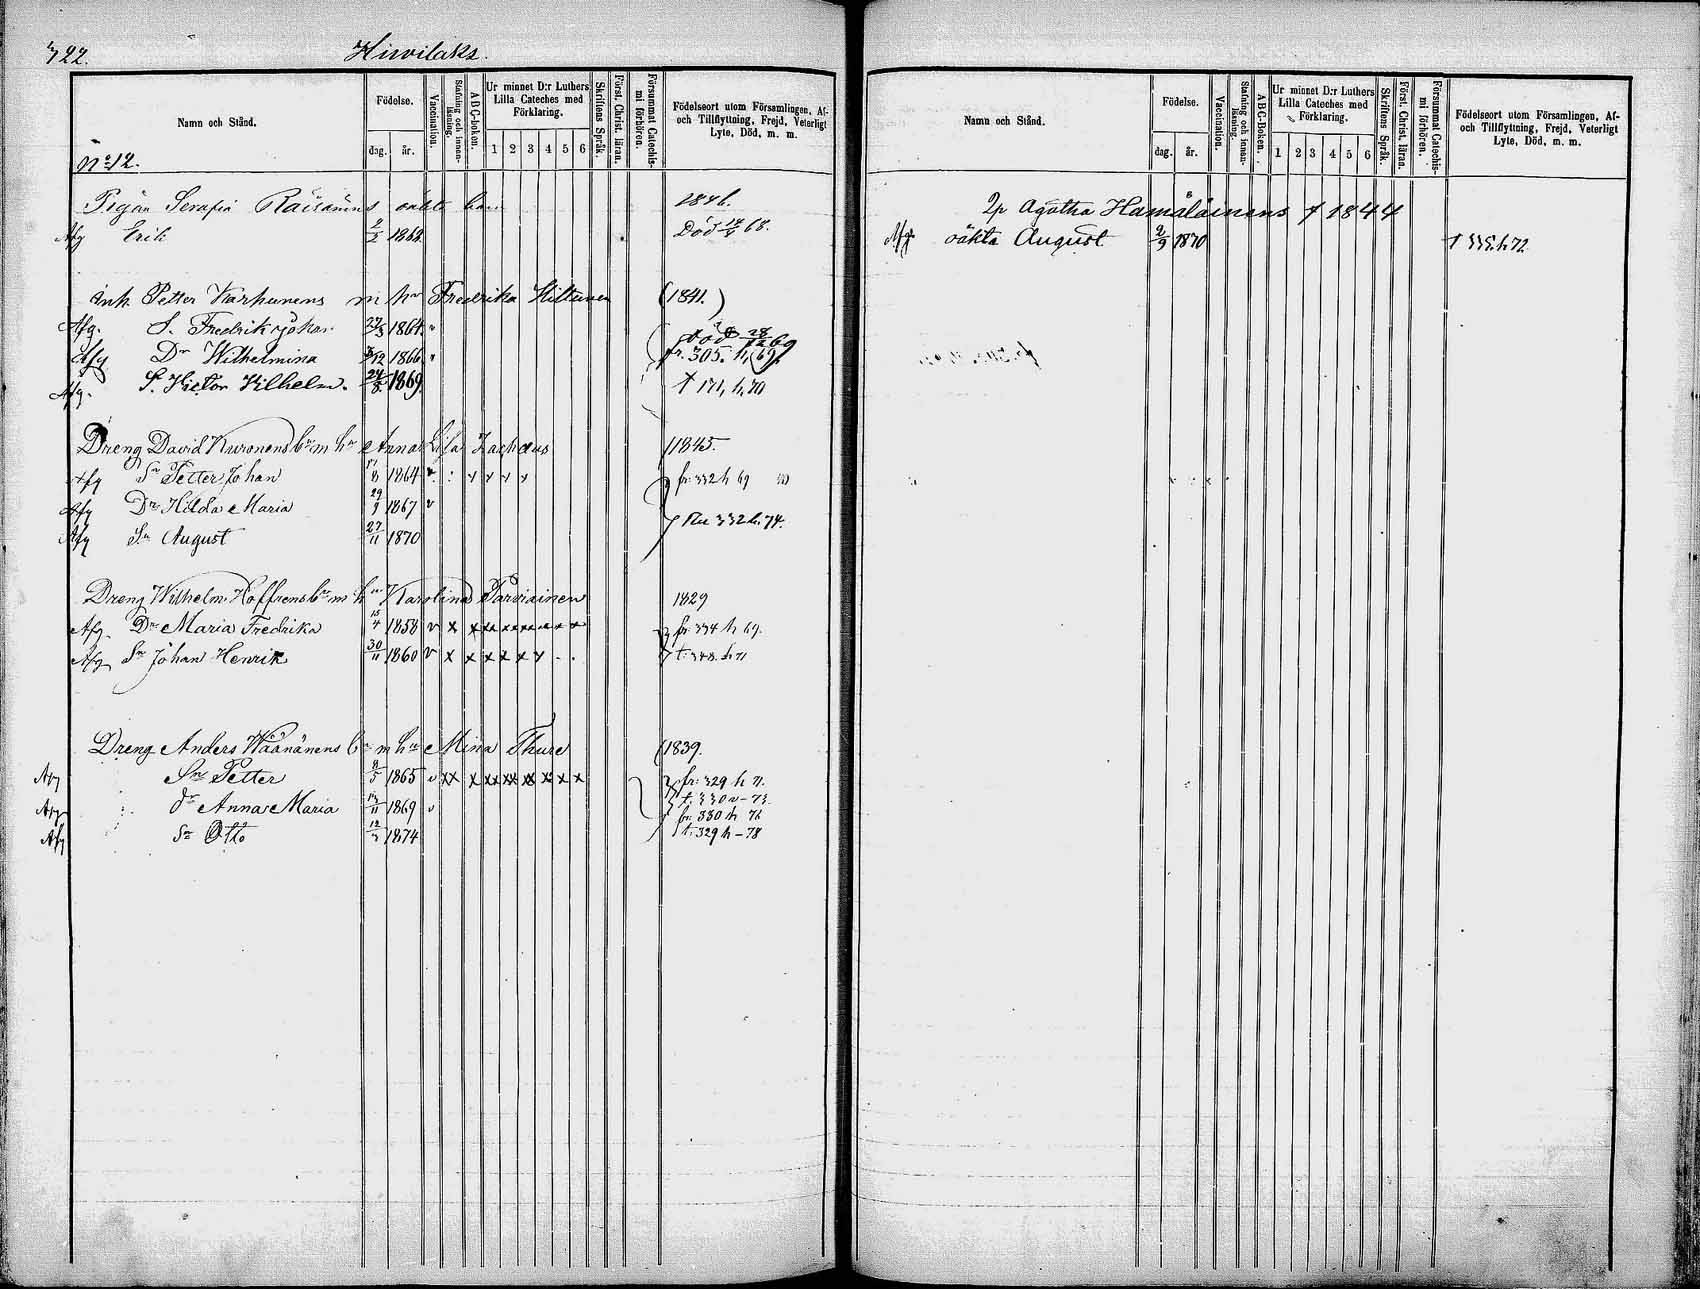 322.
Hirvilaks.
Namn och Stånd.
Födelse.
dag.
år.
Vaccination.
Stafning och innan-läsning.
A B C-boken.
Ur minnet D:r Luthers Lilla Cateches med Förklaring.
1 2 3 4 5 6
Skriftens Språk.
Först. Christ. läran.
Försummat Catechismi förhören.
Födelseort utom Församlingen, Af- och Tillflyttning, Frejd, Veterligt Lyte, Död, m. m.
No 12.
Pigan Serafia Räisänens oäkta barn 1846.
Afg Erik 2/2 1868 Död 68.
Inh. Petter Karhunens m hu Fredrika Hiltunen (1841.)
Afg. S. Fredrik Johan 27/3 1864. Död 28/12 69
Afg Dr Wilhelmina 3/12 1866 fr. 305. h, (69).
Afg. S. Victor Vilhelm. 24/8 1869. t 171, h, 70
Dreng David Kuronens bn m hu Anna Lisa Zachæus 1845.
Afg Sn Petter Johan 8 1864 v fr: 332 h 69
Afg Dr Hilda Maria 29/9 1867 v
Afg Sn August 27/11 1870 332 h. 74.
Dreng Wilhelm Hoffrens bn m hu Karolina Parviainen 1829
Afg. Dr Maria Fredrika 15/4 1858 v x x xx xx xx x x x fr: 334 h 69.
Afg Sn Johan Henrik 30/11 1860 v x x x x x x t: 348. h 71
Dreng Anders Väänänens bn m hu Mina Thure (1839.
Afg Sn Petter 8/5 1865 v xx x xx xx xx x x x fr: 329 h 71.
t: 330 v - 73.
Afg dr Anna Maria 13/11 1869 v fr: 330 h 76
Afg Sn Otto 12/3 1874 t: 329 h - 78
Namn och Stånd.
Födelse.
dag.
år.
Vaccination.
Stafning och innan-läsning.
A B C-boken.
Ur minnet D:r Luthers Lilla Cateches med Förklaring.
1 2 3 4 5 6
Skriftens Språk.
Först. Christ. läran.
Försummat Catechismi förhören.
Födelseort utom Församlingen, Af- och Tillflyttning, Frejd, Veterligt Lyte, Död, m. m.
Agatha Hämäläinens f 1844
Afg oäkta August 2/9 1870 t 335. h 72.